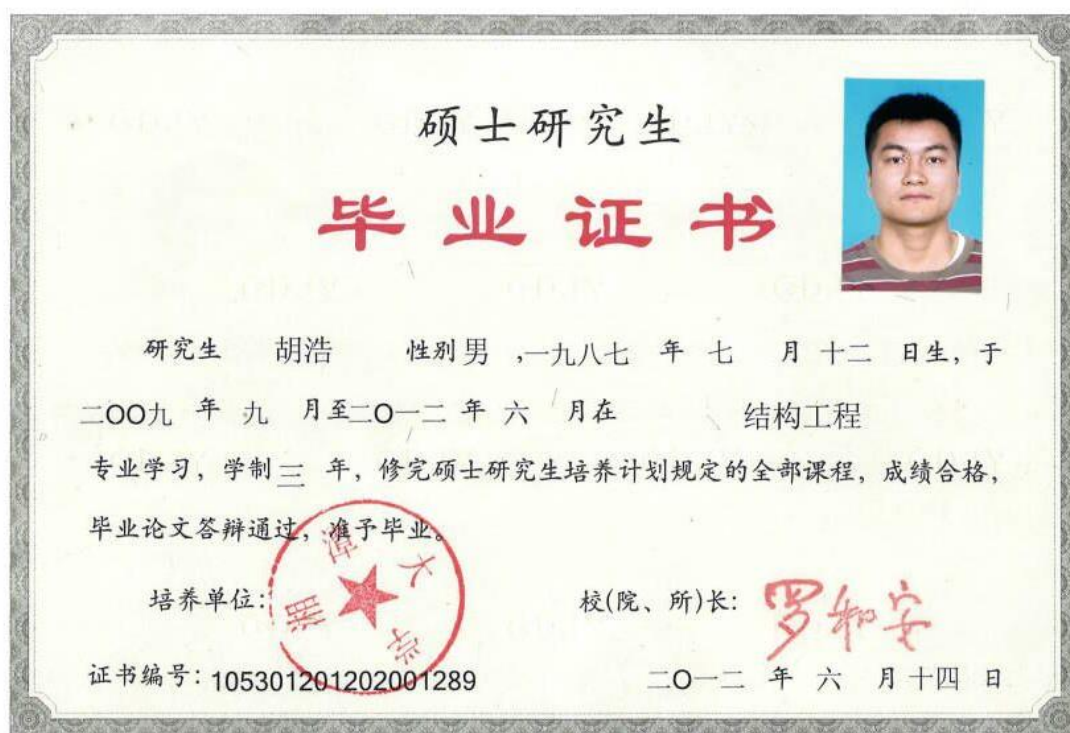 硕士研究生
毕业证书
研究生 胡浩 性别 男 ,一九八七 年 七 月 十二 日生，于
二OO九 年 九 月至 二O一二 年 六 月在 结构工程
专业学习，学制 三 年，修完硕士研究生培养计划规定的全部课程，成绩合格，
毕业论文答辩通过，准予毕业。
湘潭大学
培养单位： 校(院、所)长： 罗和安
证书编号：105301201202001289 二O一二 年 六 月 十四 日